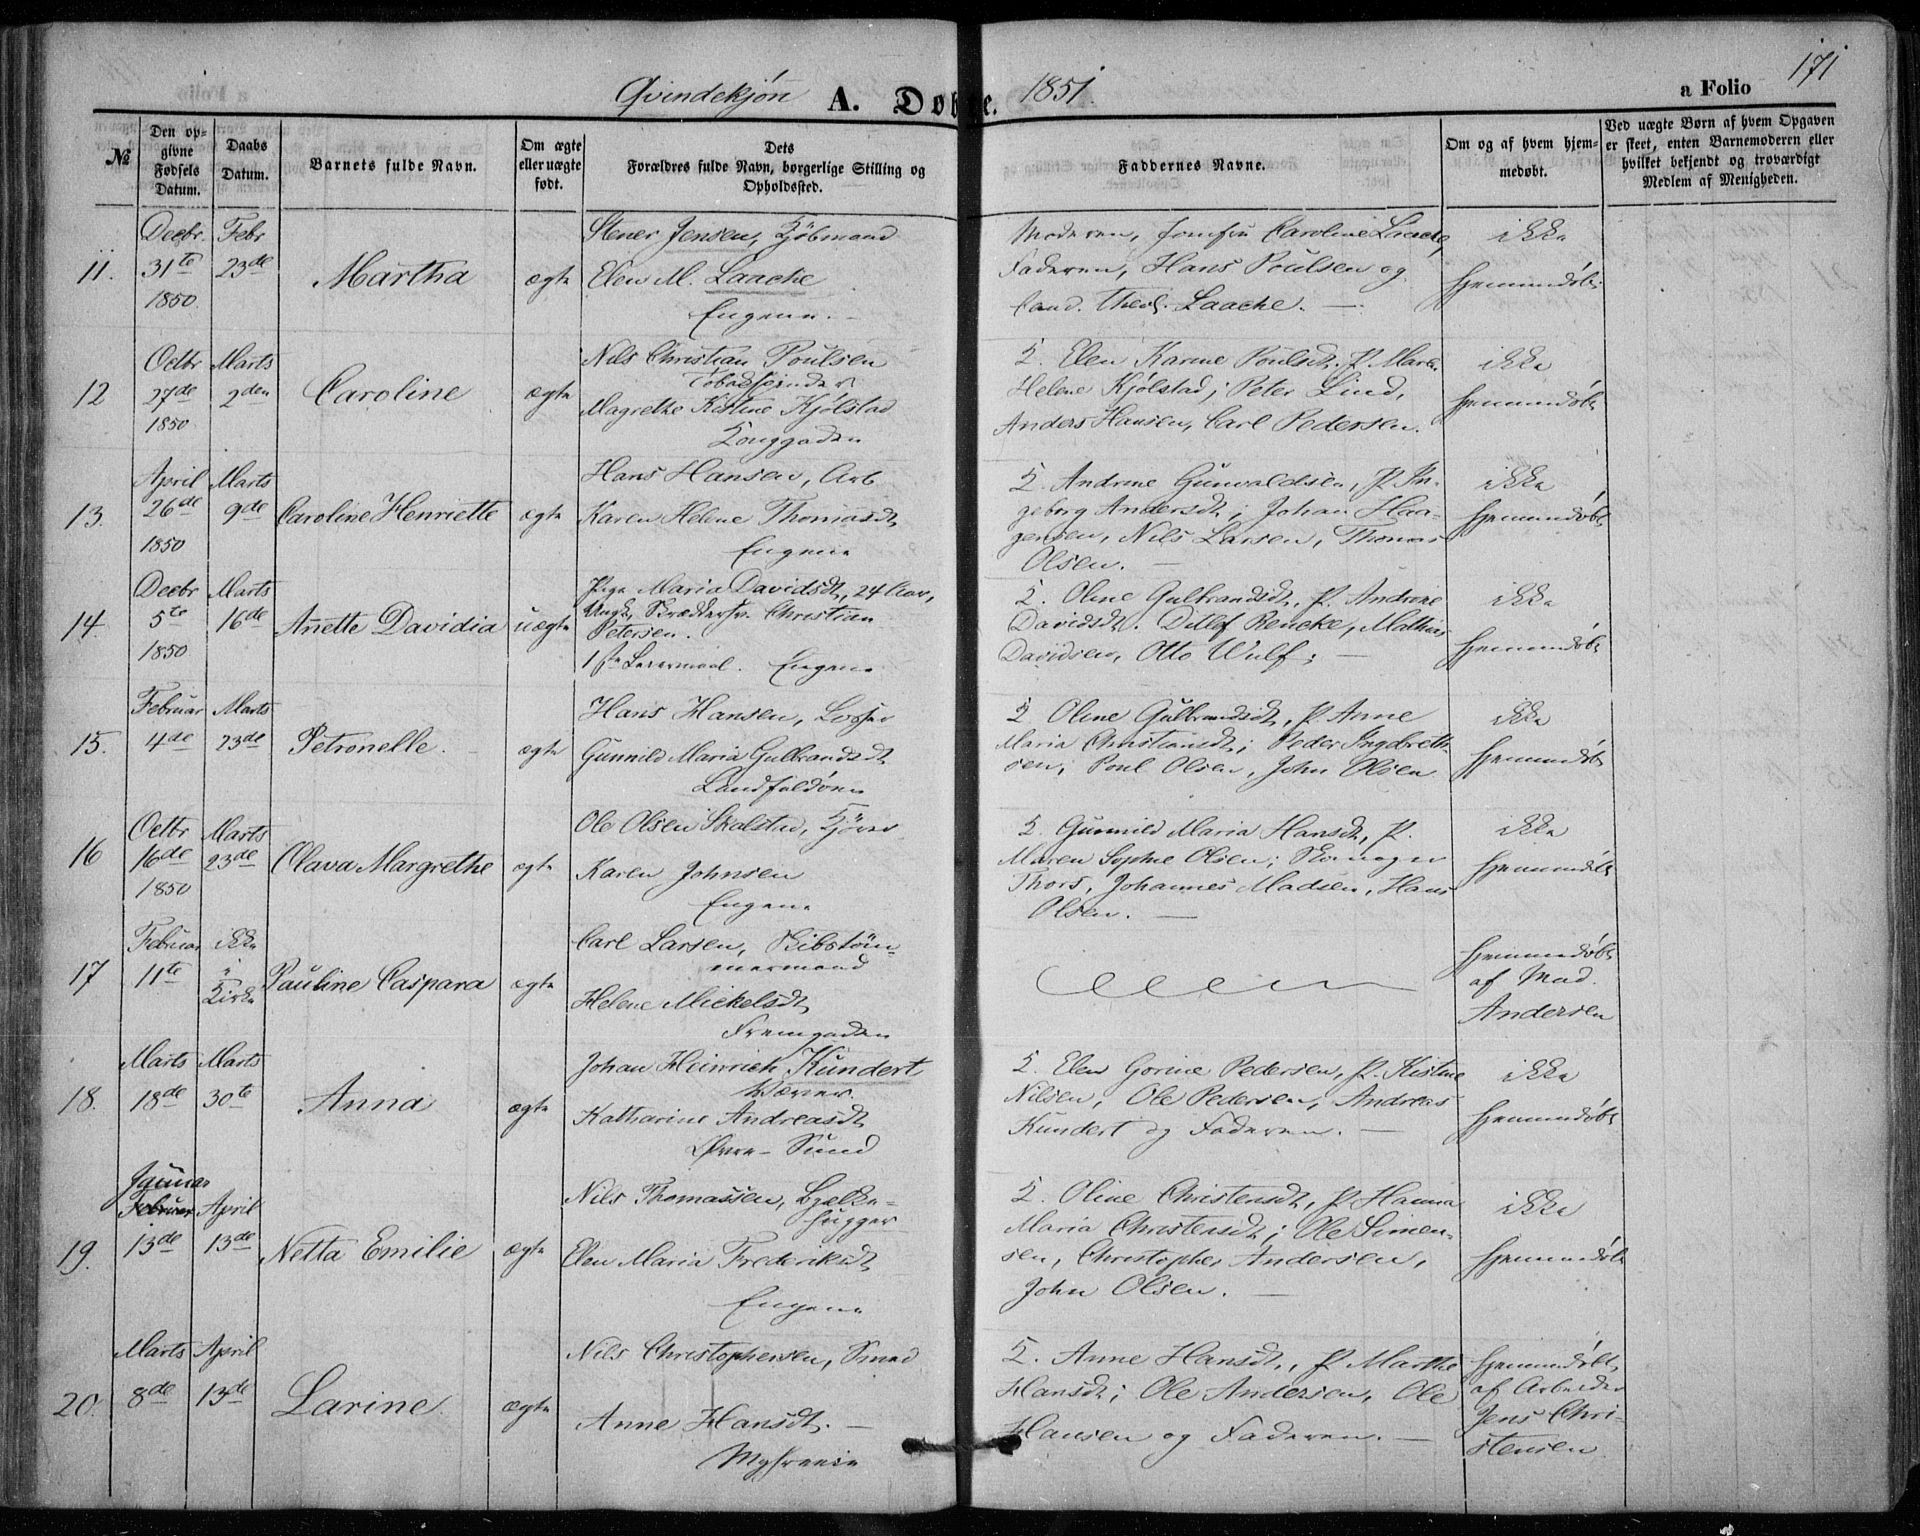 Qvindekjøn A. Døbte. 1851. a Folio 171
№
Den op-
givne
Fødsels
Datum.
Daabs
Datum.
Barnets fulde Navn.
Om ægte
eller uægte
født.
Dets
Forældres fulde Navn, borgerlige Stilling og
Opholdssted.
Faddernes Navne.
Om og af hvem hjem-
medøbt.
Ved uægte Børn af hvem Opgaven
er skeet, enten Barnemoderen eller
hvilket bekjendt og troværdigt
Medlem af Menigheden.
11.
Decbr.
31te
1850.
Febr
23de
Martha
ægte
Stener Jensen, Kjöbmand
Elen M. Laache
Engene. -
Moderen, Jomfru Caroline Laache,
Faderen, Hans Poulsen og
Cand. Theol. Laache. —
ikke
hjemmedøbt
12
Octbr
27de
1850
Marts
2den
Caroline
ægte
Nils Christian Poulsen
Tobaksspinder
Magrethe Kistine Kjölstad
Konggaden
K. Elen Karine Poulsdt. P. Maren
Helene Kjölstad; Peter Lind,
Anders Hansen, Carl Pedersen.
ikke
hjemmedøbt
13.
April
26de
1850
Marts
9de
Caroline Henriette
ægte
Hans Hansen, Arb
Karen Helene Thomasdt
Engene
K. Andrine Gunvaldsen, P. In-
geborg Andersdt; Johan Haa-
gensen, Nils Larsen, Thomas
Olsen. —
ikke
hjemmedøbt
14.
Decbr
5te
1850
Marts
16de
Anette Davidia
uægte
Pige Maria Davidsdt, 24 Aar,
Ungk. Skrædersv. Christian
Petersen.
1ste Leiermaal. Engene
K. Oline Gulbrandsdt, P. Andrine
Davidsdt. Ditlef Rencke, Mathias
Davidsen, Otto Wulf;
ikke
hjemmedøbt
15.
Februar
4de
Marts
23de
Petronelle.
ægte
Hans Hansen, Losser
Gunnild Maria Gulbrandsdt
Landfaldöen
K Oline Gulbrandsdt, P. Anne
Maria Christiansdt; Peder Ingebreth-
sen, Poul Olsen, John Olsen
ikke
hjemmedøbt
16
Octbr
16de
1850
Marts
23de
Olava Margrethe
ægte
Ole Olsen Skalstad,
Karen Johnsen
Engene
K. Gunnild Maria Hansdt, P.
Maren Sophie Olsen; Skomager
Thors, Johannes Madsen, Hans
Olsen. —
ikke
hjemmedøbt
17
Februar
11te
ikke
i
Kirke
Pauline Caspara
ægte
Carl Larsen, Skibstöm-
mermand
Helene Mickelsdt
Fremgaden
hjemmedøbt
af Mad.
Andersen
18.
Marts
18de
Marts
30te
Anna
ægte
Johan Heinrich Kundert
Væver
Katharine Andreasdt
Övre-Sund
K. Elen Gorine Pedersen, P. Kistine
Nilsen, Ole Pedersen, Andreas
Kundert og Faderen. —
ikke
hjemmedøbt
19.
Januar
Februar
13de
April
13de
Netta Emilie
ægte
Nils Thomassen, Bjelke-
hugger
Elen Maria Frederiksdt
Engene
K. Oline Christensdt, P. Hanna
Maria Christensdt; Ole Simen-
sen, Christopher Andersen,
John Olsen. —
ikke
hjemmedøbt
20.
Marts
8de
April
13de
Larine
ægte
Nils Christophersen, Smed
Anne Hansdt. —
Myhrene
K. Anne Hansdt, P. Marthe
Hansdt; Ole Andersen, Ole
Hansen og Faderen. —
hjemmedøbt
af Arbeider
Jens Chri-
stensen